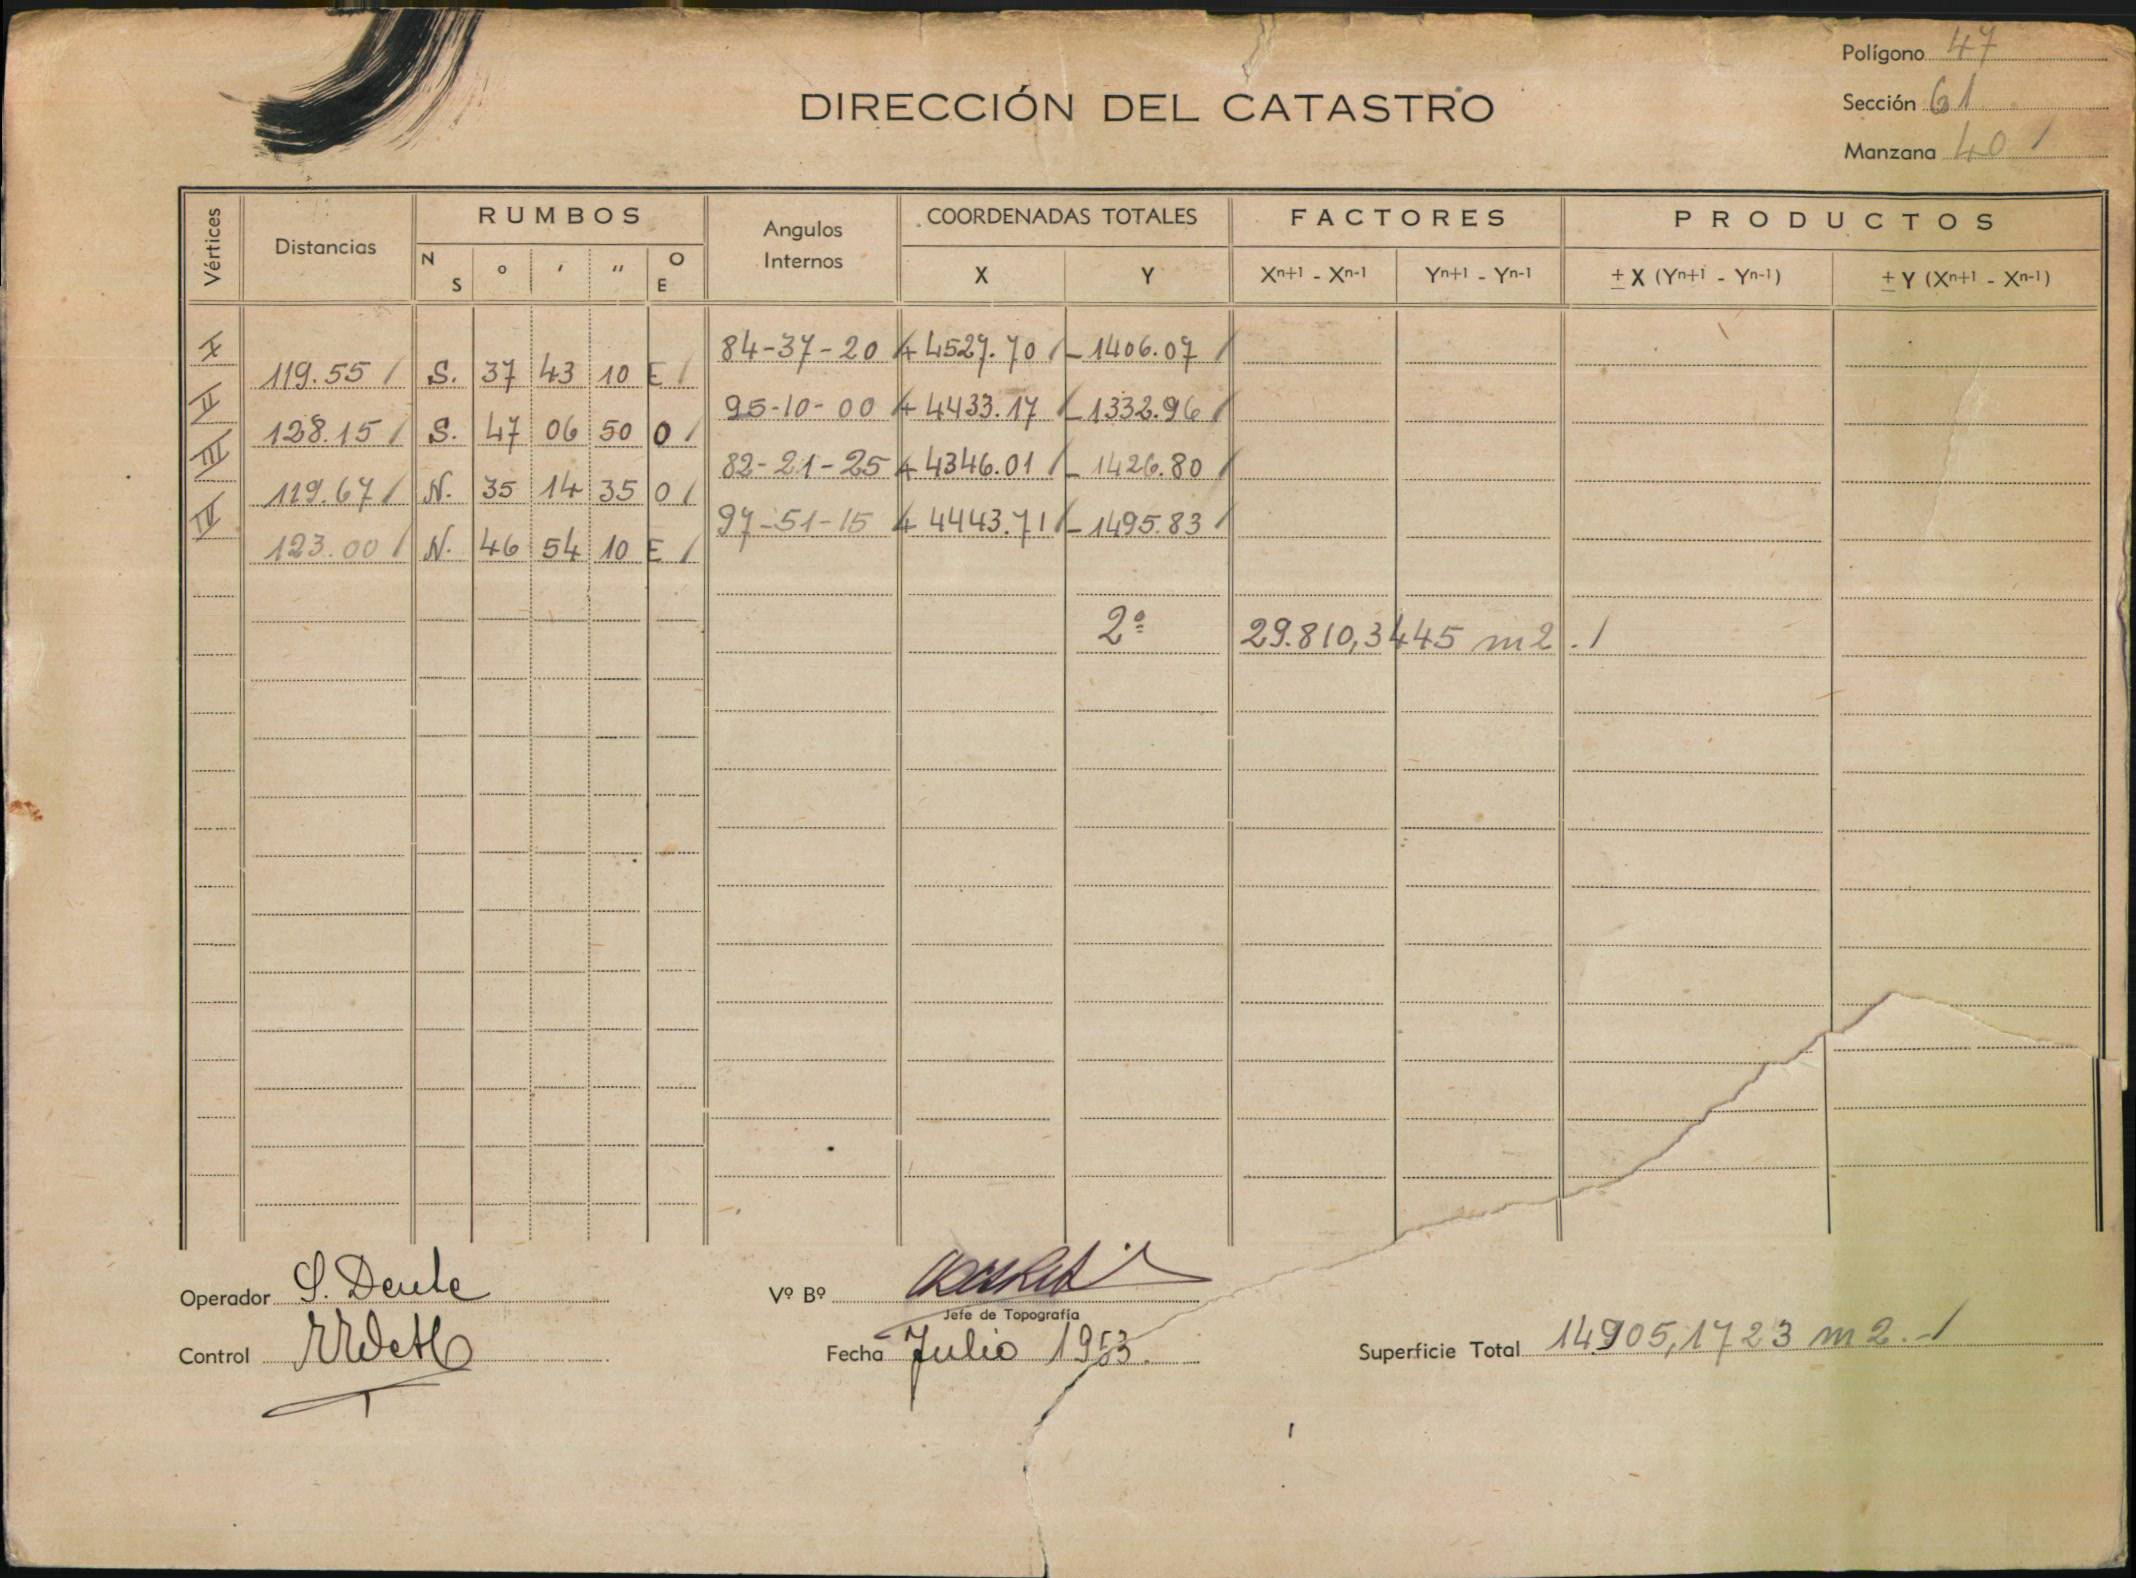 Polígono 47
DIRECCIÓN DEL CATASTRO
Sección 61
Manzana 40 /
Vértices
Distancias
RUMBOS
N S ° ′ ″ O E
Angulos Internos
COORDENADAS TOTALES
X Y
FACTORES
Xn+1 - Xn-1 Yn+1 - Yn-1
PRODUCTOS
± X (Yn+1 - Yn-1) ± Y (Xn+1 - Xn-1)
84-37-20 + 4529.70 / - 1406.07 /
119.55 / S. 37 43 10 E /
II 95-10-00 + 4433.17 / - 1332.96 /
128.15 / S. 47 06 50 O /
III 82-21-25 + 4346.01 / - 1426.80 /
119.67 / N. 35 14 35 O /
IV 97-51-15 + 4443.71 / - 1495.83 /
123.00 / N. 46 54 10 E /
2º 29.810,3445 m2. /
Operador
Vº Bº
Jefe de Topografía
Control
Fecha Julio 1953.
Superficie Total 14905,1723 m2. - /